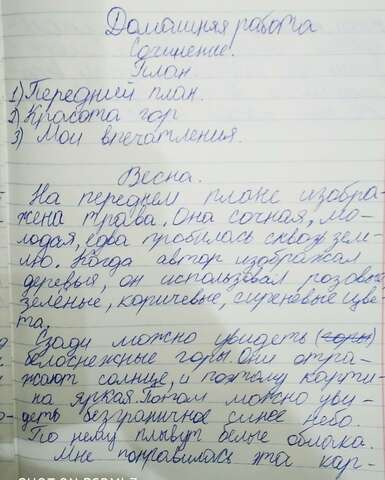 Домашняя работа
Сочинение.
План.
1) Передний план.
2) Красота гор
3) Мои впечатления.
Весна.
На переднем плане изобра-
жена трава. Она сочная, мо-
лодая, едва пробилась сквозь зем-
лю. Когда автор изображал
деревья, он использовал розовые
зеленые, коричевые, сиреновые цве-
та.
Сзади можно увидеть (горы)
белоснежные горы. Они отра-
жают солнце, и поэтому карти-
на яркая. Потом можно уви-
деть безграничное синее небо.
По нему плывут белые облака.
Мне понравилась эта кар-